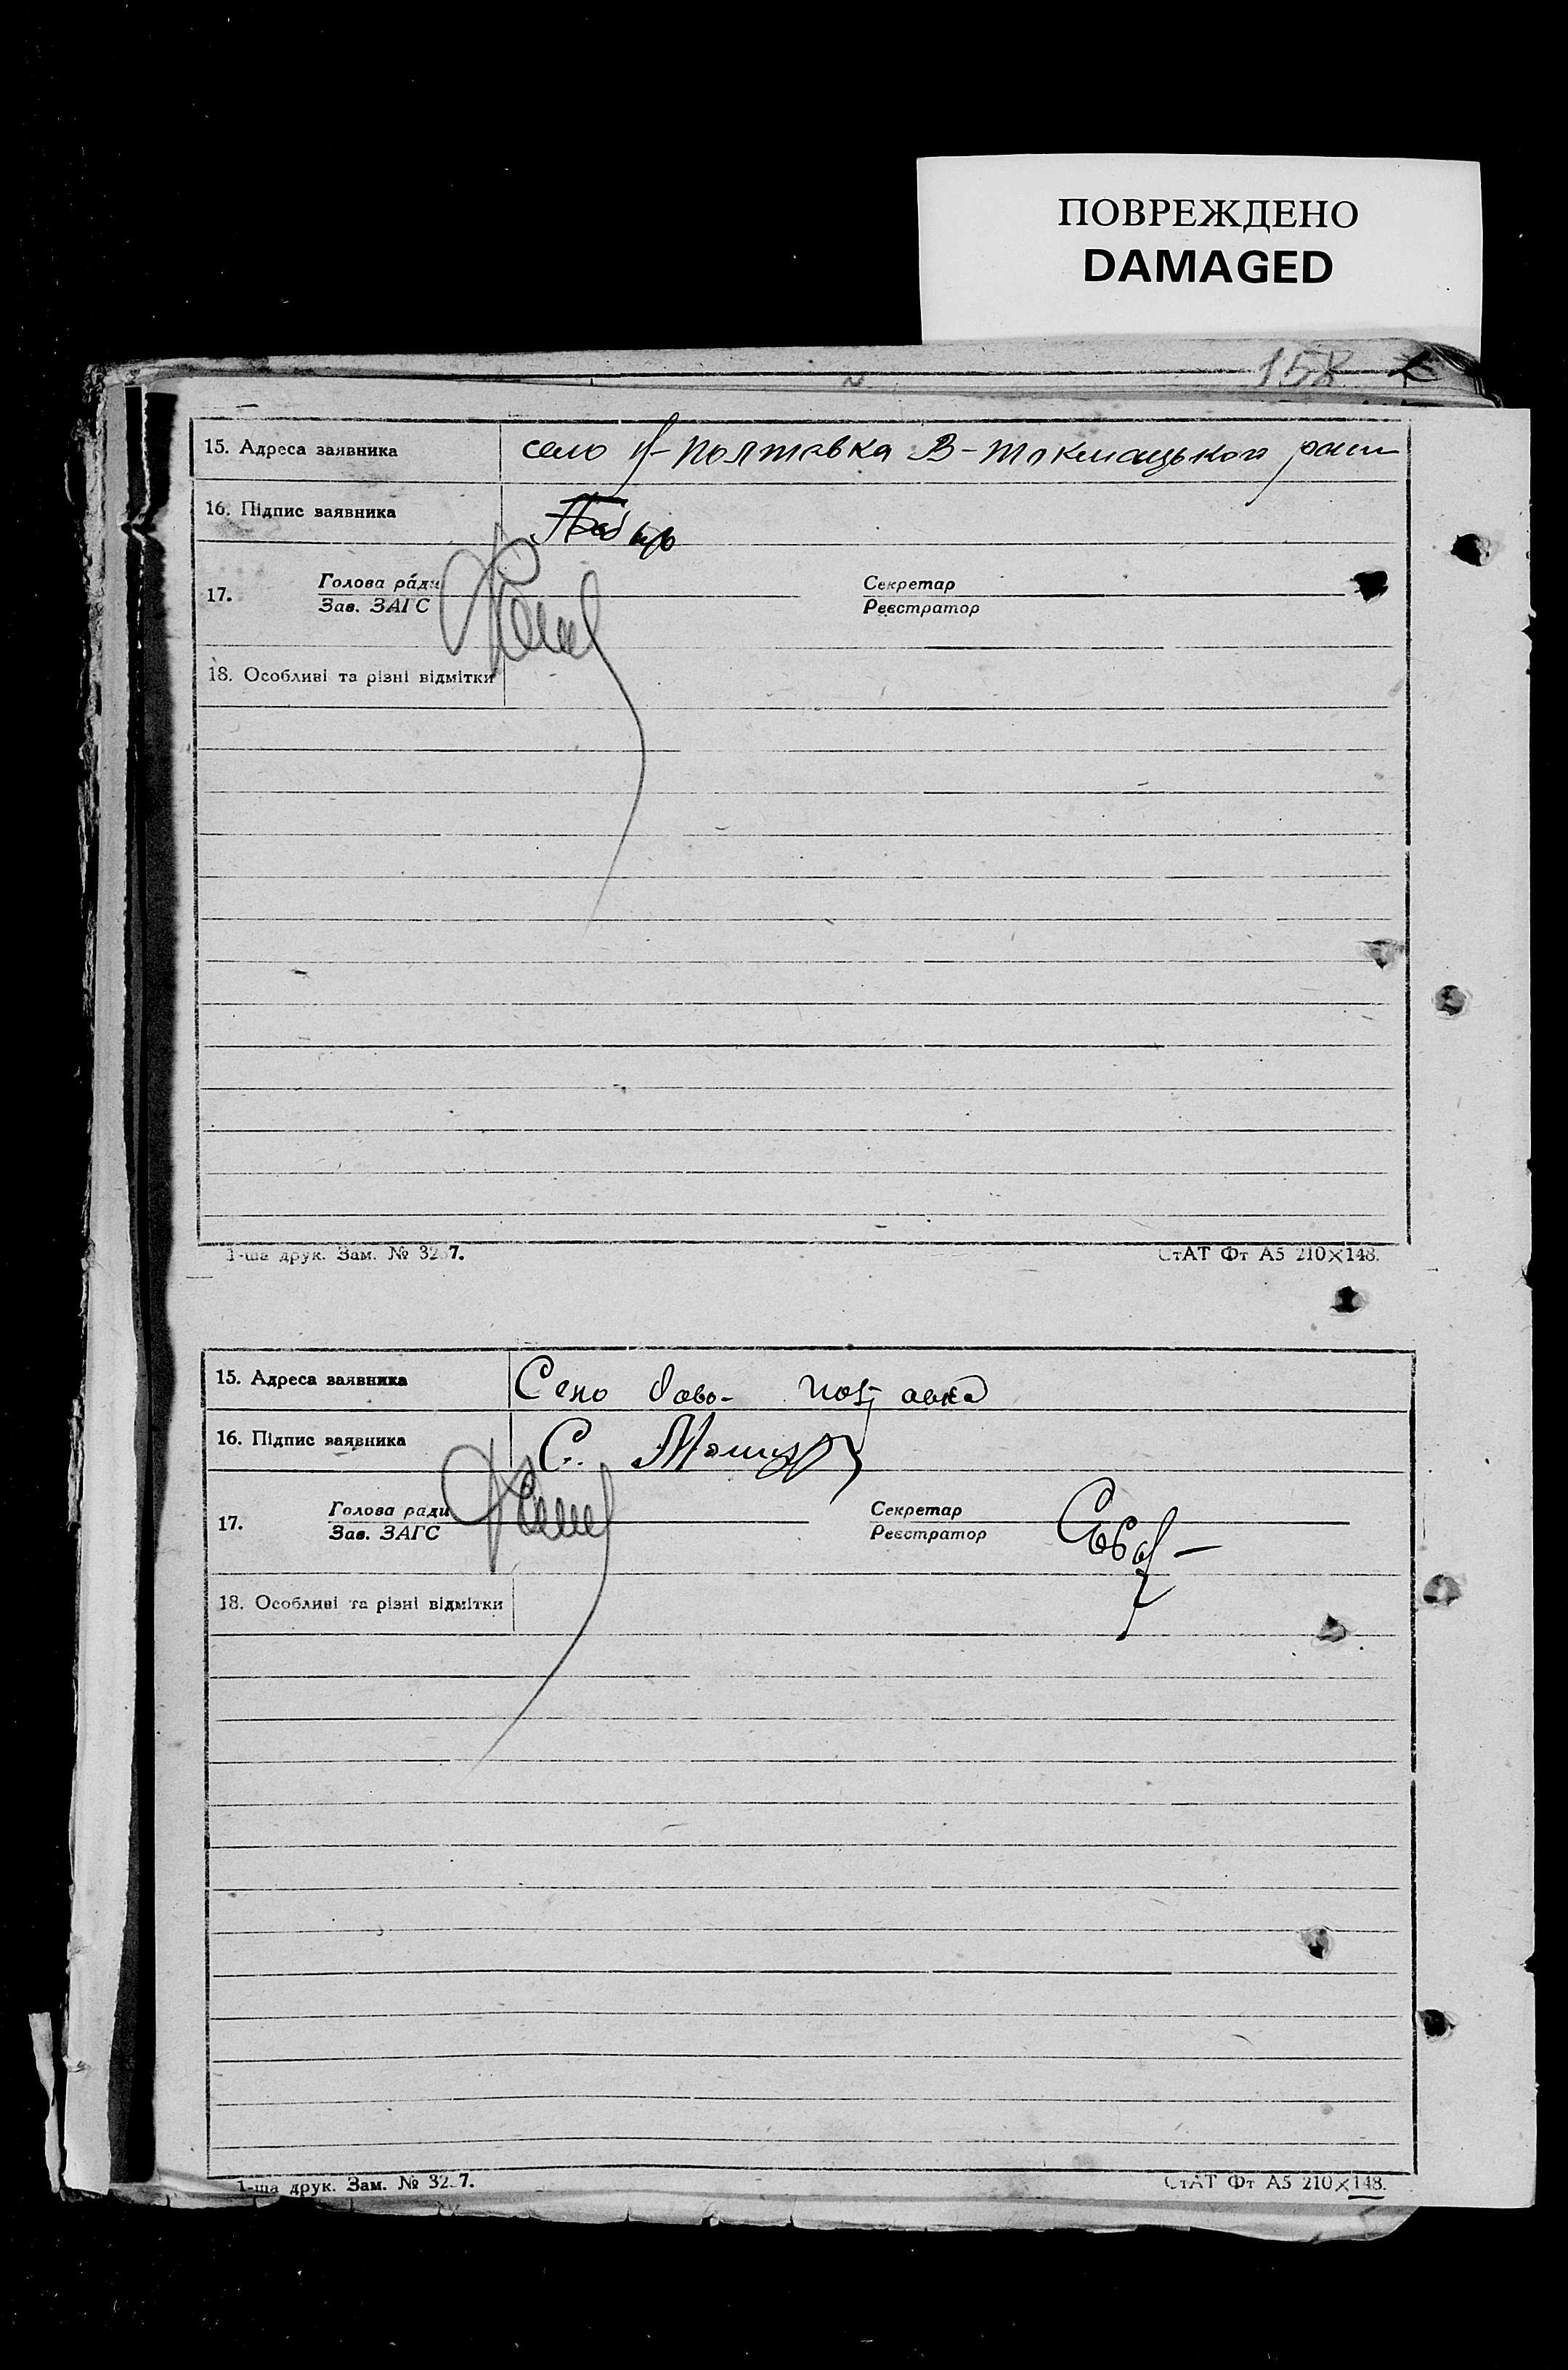 ПОВРЕЖДЕНО
DAMAGED
158
15. Адреса заявника село Н-Полтавка В-Токмацького
16. Підпис заявника
17. Голова ради Секретар
Зав. ЗАГС Реєстратор
18. Особливі та різні відмітки
1-ша друк. Зам. № 32 7. СтАТ Фт А5 210×148.
15. Адреса заявника Село
16. Підпис заявника С.
17. Голова ради Секретар
Зав. ЗАГС Реєстратор
18. Особливі та різні відмітки
1-ша друк. Зам. № 32 7. СтАТ Фт А5 210×148.